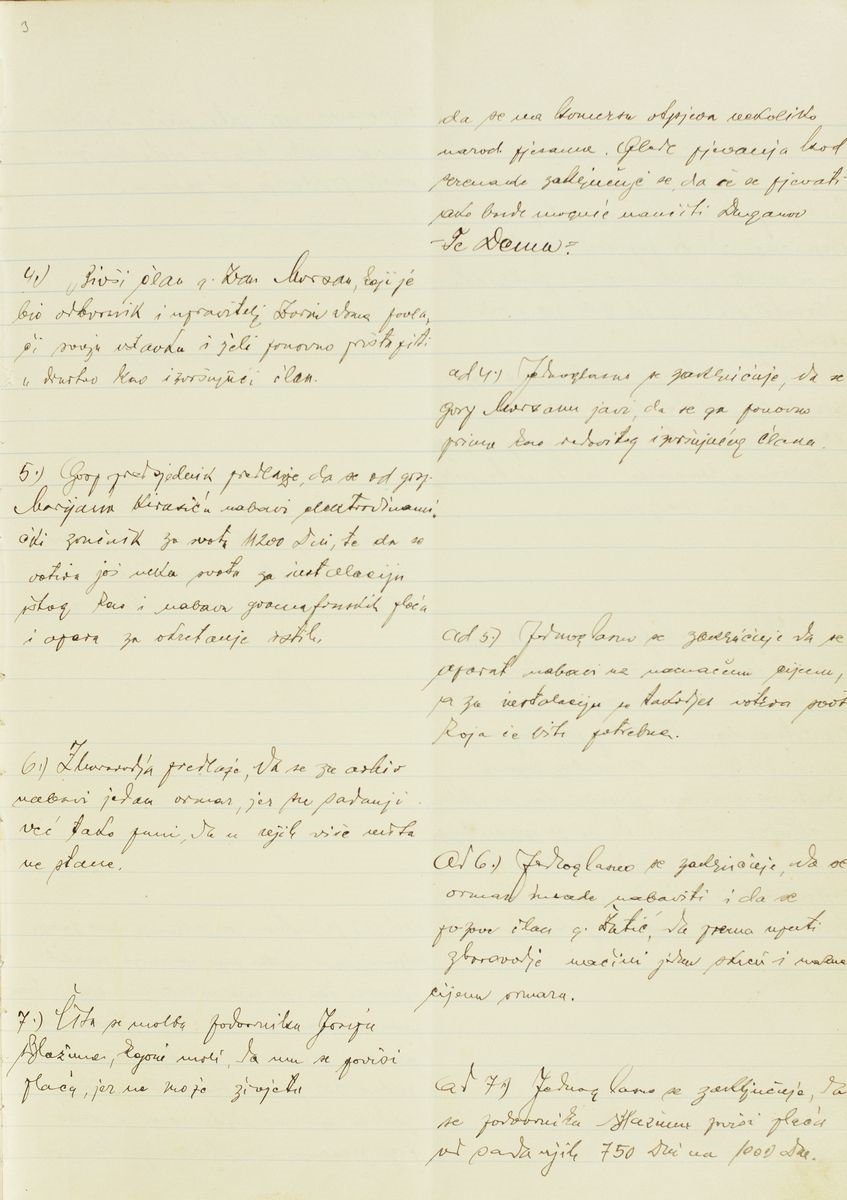 3
da se na komersu otpjeva nekoliko
narod. pjesama. Glede pjevanja kod
serenade zaključuje se, da će se pjevati
ako bude moguće naučiti Duganov
"Te Deum"
4.) Bivši član g. Ivan Morsan, koji je
bio odbornik i upravitelj Zorin doma povla,
či svoju ostavku i želi ponovno pristupiti
u društvo kao izvršujući član.
ad 4.) Jednoglasno se zaključuje, da se
gosp Morsanu javi, da se ga ponovno
prima kao redovitog izvršujućeg člana.
5.) Gosp predsjednik predlaže, da se od gosp.
Marijana nabavi elektrodinami,
čki zvučnik za svotu 11200 Din, te da se
votira još neka svota za instalaciju
istog kao i nabava gramafonskih ploča
i apara za okretanje istih.
ad 5.) Jednoglasno se zaključuje da se
aparat nabavi na naznačenu cijenu,
a za instalaciju se također votira svota
koja će biti potrebna.
6.) Zborovodja predlaže, da se za arhiv
nabavi jedan ormar, jer su sadanji
već tako puni, da u njih više ništa
ne stane.
Ad 6.) Jednoglasno se zaključuje, da se
ormar imade nabaviti i da se
pozove član g. Žutić, da prema uputi
zborovodje načini jedan skicu i
cijenu ormara.
7.) Čita se molba podvornika Josipa
Blažine, kojom moli, da mu se povisi
plaća, jer ne može živjeti
Ad 7.) Jednoglasno se zaključuje, da
se podvorniku Blažinu povisi plaća
od sadanjih 750 Din na 1000 Din.